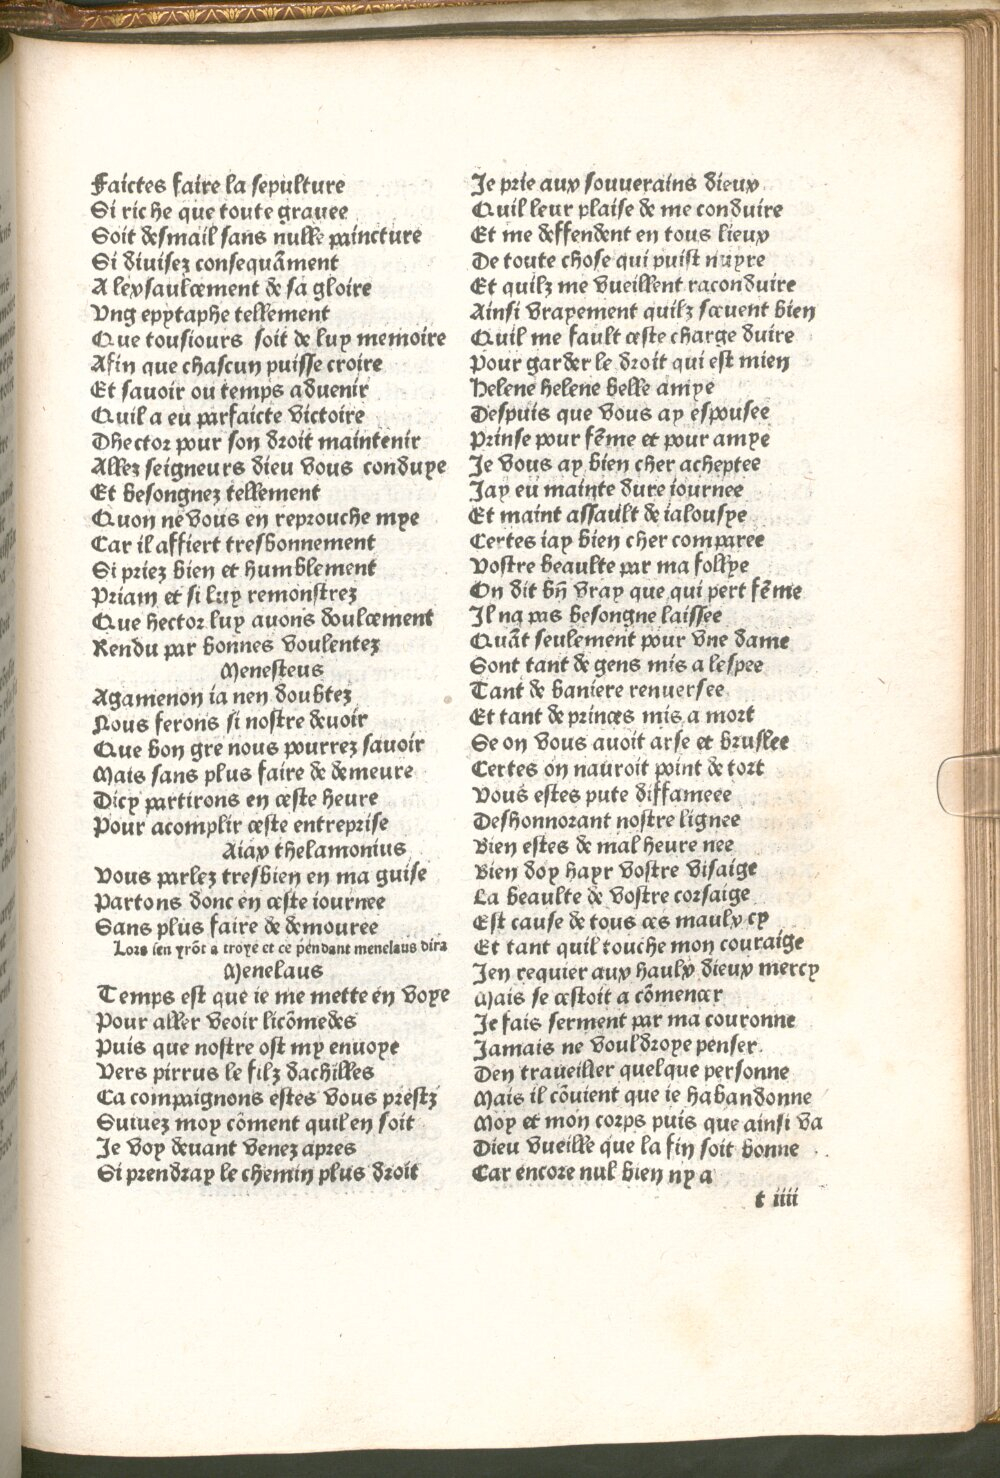 Faictes faire la sepulture
Si riche que toute grauee
Soit desmail sans nulle paincture
Si diuisez consequãment
A lexsaulcement de sa gloire
Vng epytaphe tellement
Que tousiours soit de luy memoire
Afin que chascun puisse croire
Et sauoir ou temps aduenir
Quil a eu parfaicte victoire
Dhector pour son droit maintenir
Allez seigneurs dieu vous conduye
Et besongnez tellement
Quon ne vous en reprouche mye
Car il affiert tresbonnement
Si priez bien et humblement
Priam et si luy remonstrez
Que hector luy auons doulcement
Rendu par bonnes voulentez
Menesteus
Agamenon ia nen doubtez
Nous ferons si nostre deuoir
Que bon gre nous pourrez sauoir
Mais sans plus faire de demeure
Dicy partirons en ceste heure
Pour acomplir ceste entreprise
Aiax thelamonius
Vous parlez tresbien en ma guise
Partons donc en ceste iournee
Sans plus faire de demouree
Lors sen yrõt a troye et ce pendant menelaus dira
Menelaus
Temps est que ie me mette en voye
Pour aller veoir licõmedes
Puis que nostre ost my enuoye
Vers pirrus le filz dachilles
Ca compaignons estes vous prestz
Suiuez moy cõment quil en soit
Je voy deuant venez apres
Si prendray le chemin plus droit
Je prie aux souuerains dieux
Quil leur plaise de me conduire
Et me deffendent en tous lieux
De toute chose qui puist nuyre
Et quilz me vueillent raconduire
Ainsi vrayement quilz sceuent bien
Quil me fault ceste charge duire
Pour garder le droit qui est mien
Helene helene belle amye
Despuis que vous ay espousee
Prinse pour fẽme et pour amye
Je vous ay bien cher acheptee
Jay eu mainte dure iournee
Et maint assault de ialousye
Certes iay bien cher comparee
Vostre beaulte par ma follye
On dit bñ vray que qui pert fẽme
Il na pas besongne laissee
Quãt seulement pour vne dame
Sont tant de gens mis a lespee
Tant de baniere renuersee
Et tant de princes mis a mort
Se on vous auoit arse et bruslee
Certes on nauroit point de tort
Vous estes pute diffameee
Deshonnorant nostre lignee
Bien estes de mal heure nee
Bien doy hayr vostre visaige
La beaulte de vostre corsaige
Est cause de tous ces maulx cy
Et tant quil touche mon couraige
Jen requier aux haulx dieux mercy
Mais se cestoit a cõmencer
Je fais serment par ma couronne
Jamais ne vouldroye penser
Den traueiller quelque personne
Mais il cõuient que ie habandonne
Moy et mon corps puis que ainsi va
Dieu vueille que la fin soit bonne
Car encore nul bien ny a
t iiii